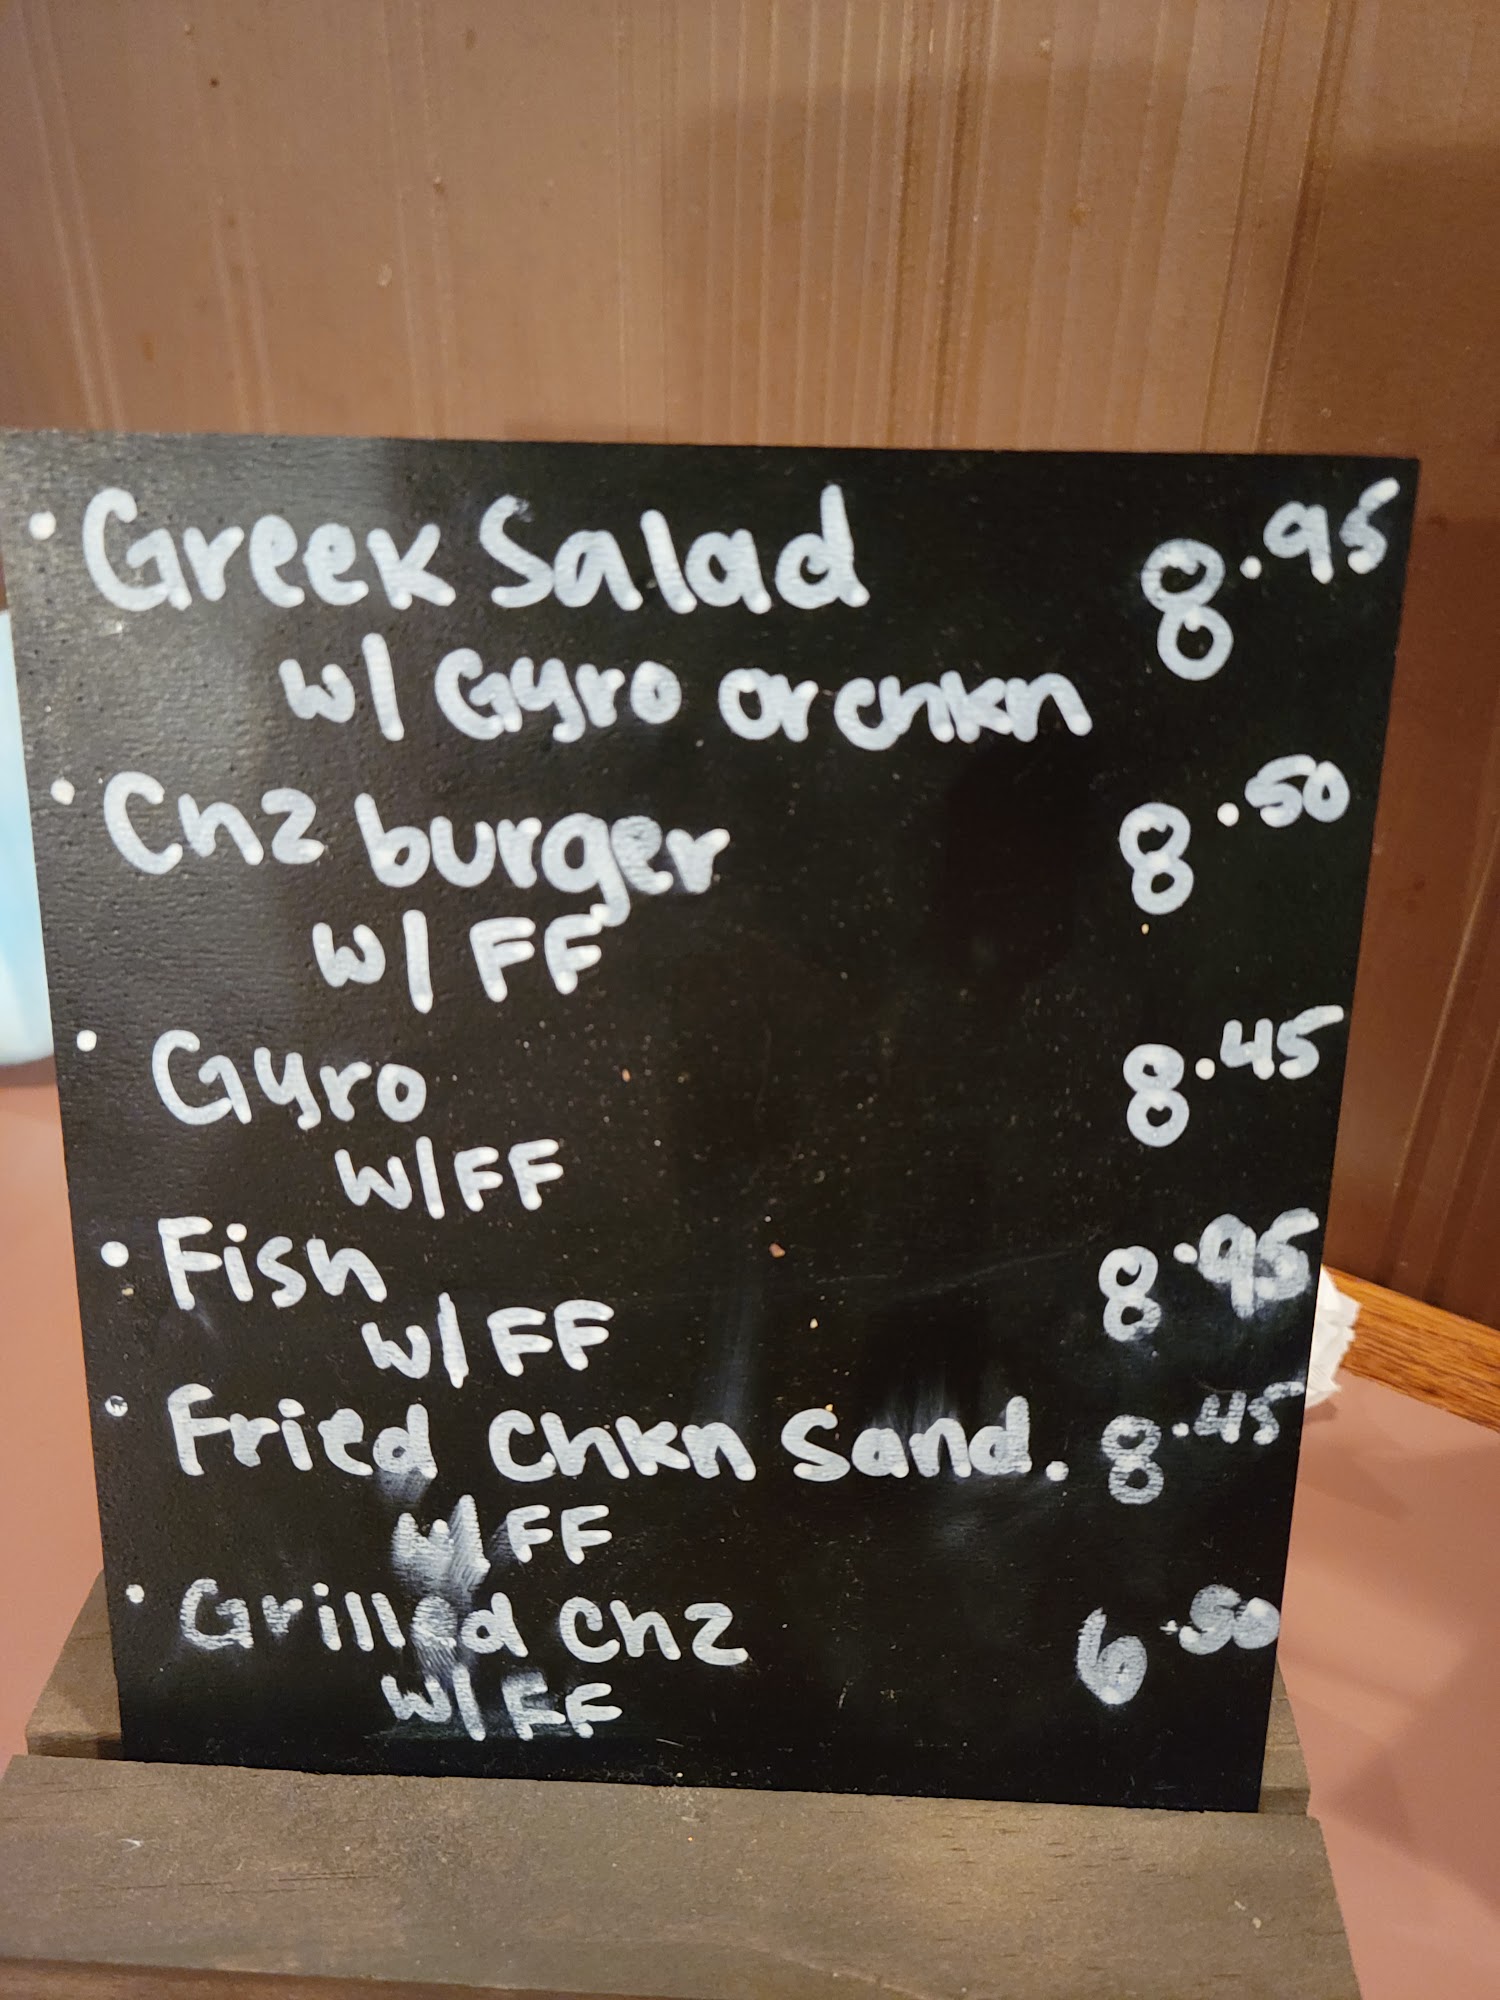 • Greek Salad 8.95
w/ Gyro or chkn
• Chz burger 8.50
w/ FF
• Gyro 8.45
w/ FF
• Fish 8.95
w/ FF
• Fried Chkn Sand. 8.45
w/ FF
• Grilled Chz 6.50
w/ FF